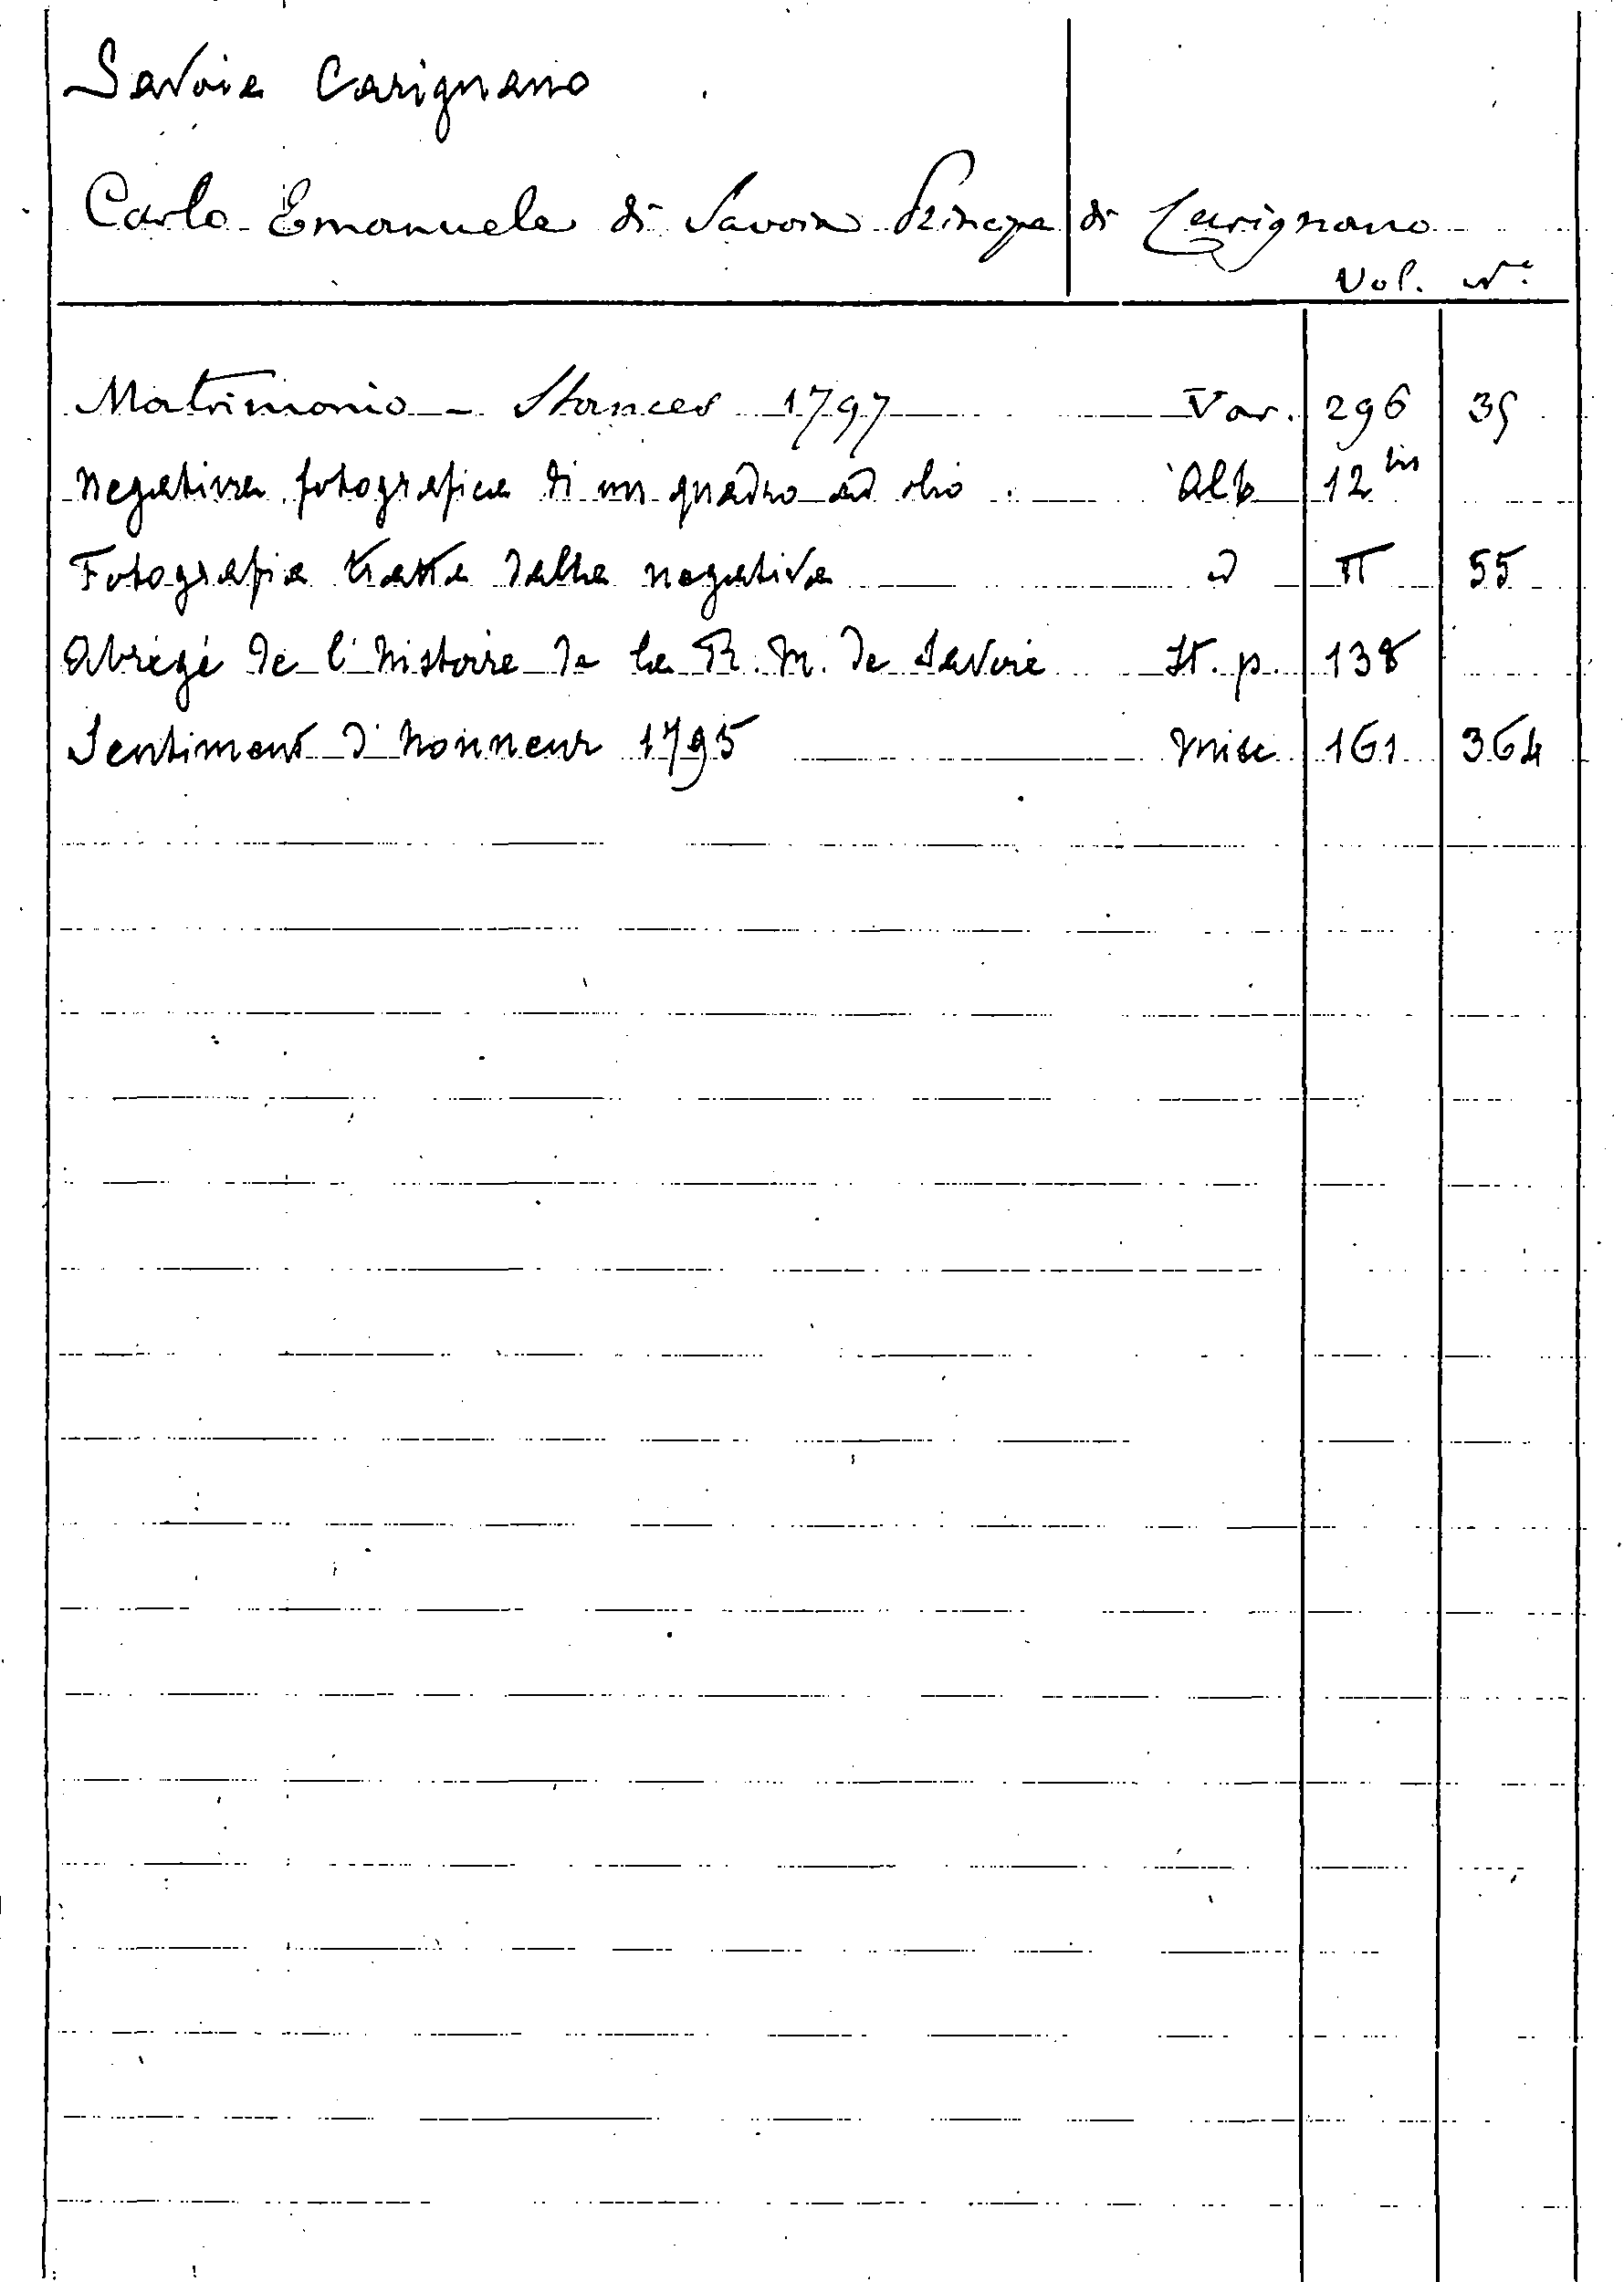 Savoia Carignano
Carlo Emanuele di Savoia Principe di Carignano
Vol. N.
Matrimonio - Stances 1797 Var. 296 35
Negativa fotografica di un quadro ad olio Alb 12 bis
Fotografia tratta dalla negativa id II 55
Abrégé de l'histoire de la R. M. de Savoie St. p. 138
Sentiment d'honneur 1795 Misc 161 364